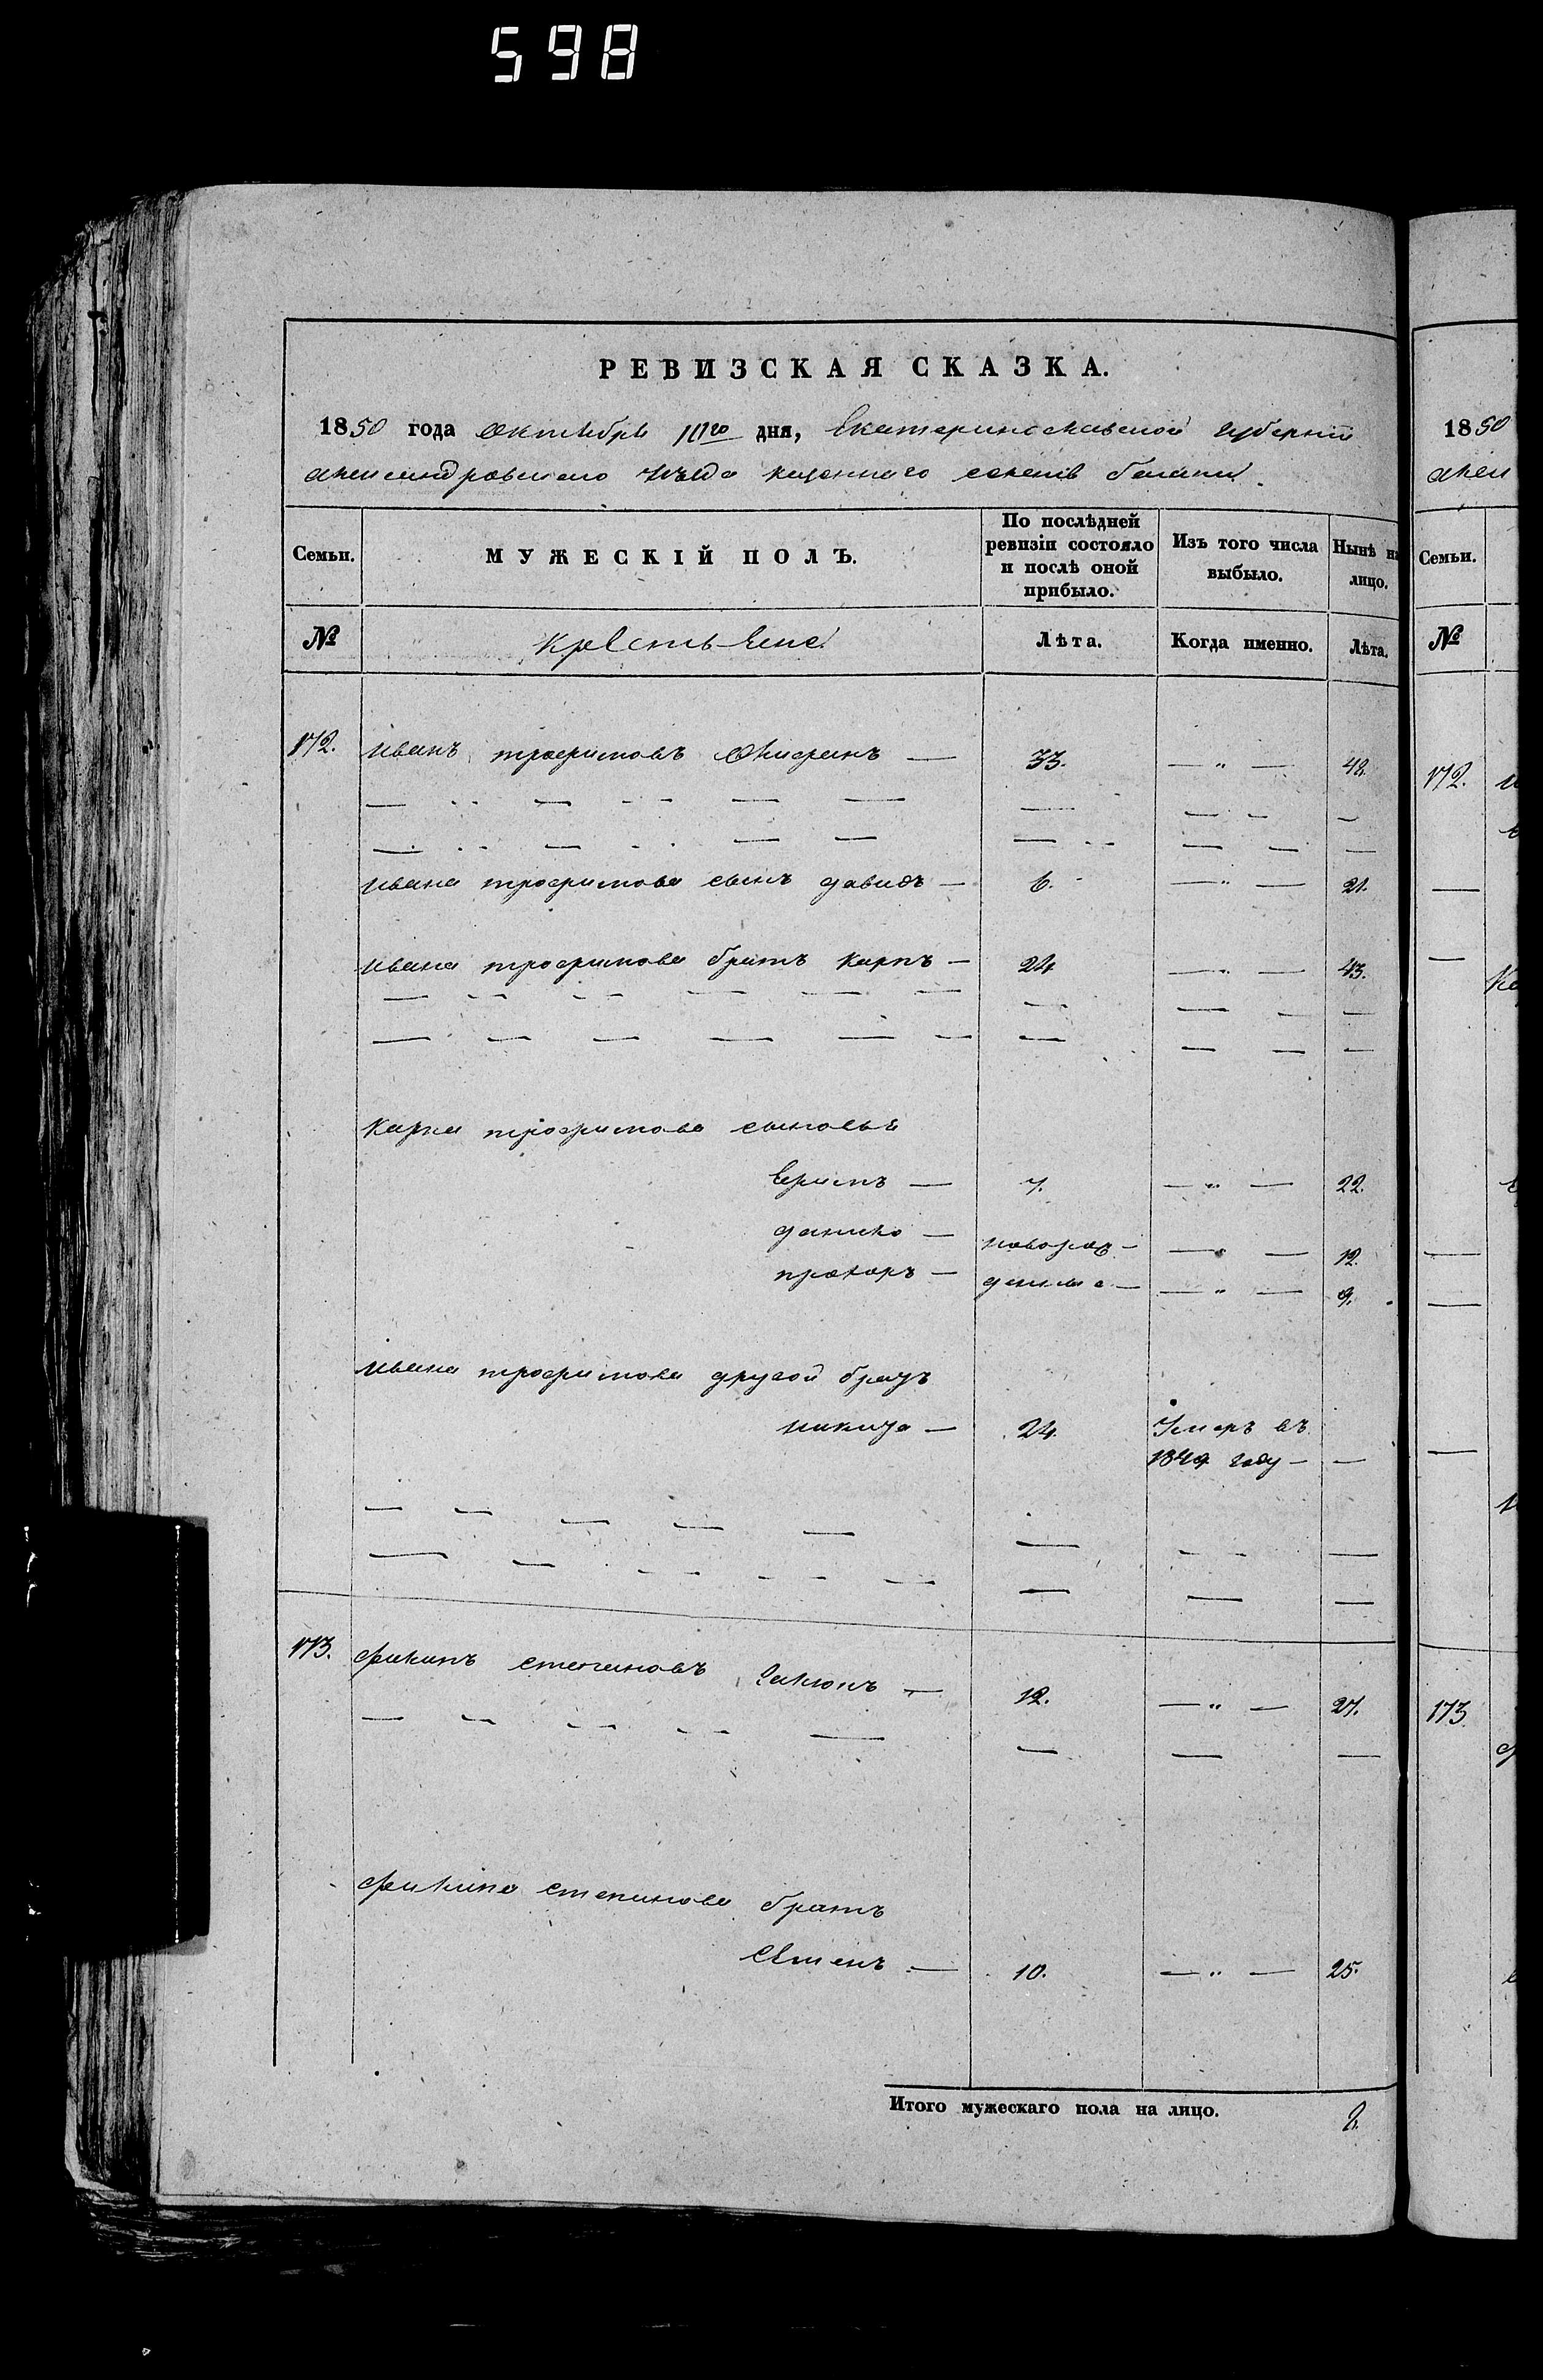 598
РЕВИЗСКАЯ СКАЗКА.
1850 года Октября 11го дня, Екатеринославской губернiи
александровского уѣзда казенного селенiя
Семьи. МУЖЕСКІЙ ПОЛЪ. По послѣдней ревизіи состояло и послѣ оной прибыло. Изъ того числа выбыло. Нынѣ на лицо.
№ крестьяне Лѣта. Когда именно. Лѣта.
172. Иванъ трофимовъ — 33. — „ — 48.
Ивана трофимова сынъ давидъ — 6. — „ — 21.
Ивана трофимова братъ карпъ — 24 — „ — 43.
Карпа трофимова сыновья
— 7. — „ — 22.
данило — новорож- — „ — 12.
прохоръ — денные — — „ — 9.
Ивана трофимова другой братъ
никита — 24. Умеръ въ
1849 году — —
173. филипъ степановъ — 12. — „ — 27.
филипа степанова братъ
— 10. — „ — 25.
Итого мужескаго пола на лицо.
1850
172.
173
Семьи.
№